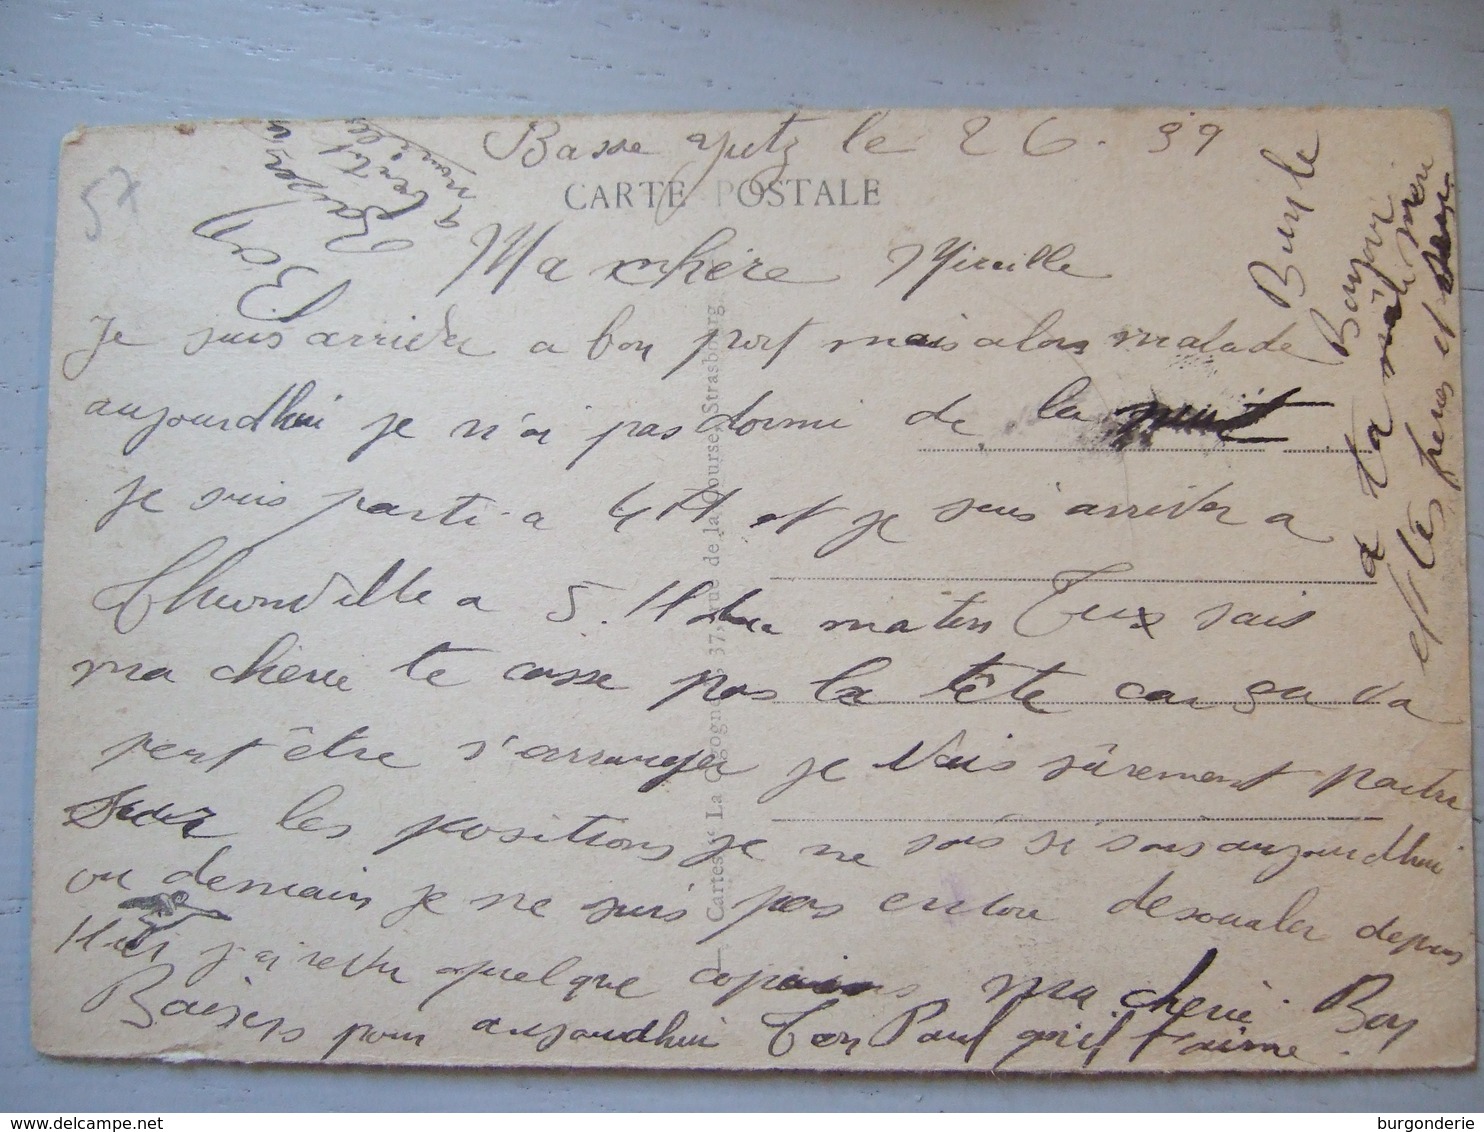 57
Basse yutz le 26. 39
CARTE POSTALE
Ma chère Mireille
Je suis arriver a bon port mais alors malade
aujourdhui je n'ai pas dormi de la nuit
je suis parti a 4H et je suis arriver a
Thionville a 5.H du matin Tu sais
ma cherie te casse pas la tête car sa va
peut être s'arranger je vais sûrement partir
sur les positions je ne sais si sais aujourdhui
ou demain je ne suis pas encore desouler depuis
Hier j'ai revu quelque copains ma cherie Bon
Baisers pour aujourdhui Ton Paul qui t'aime.
Bonjour
a ta mère
et tes freres et
Bon
Baisers
Cartes "La Cigogne" 37, rue de la Course, Strasbourg
burgonderie